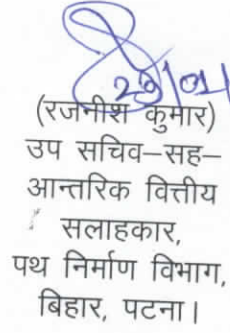 29/01/
(रजनीश कुमार)
उप सचिव–सह–
आन्तरिक वित्तीय
सलाहकार,
पथ निर्माण विभाग,
बिहार, पटना।